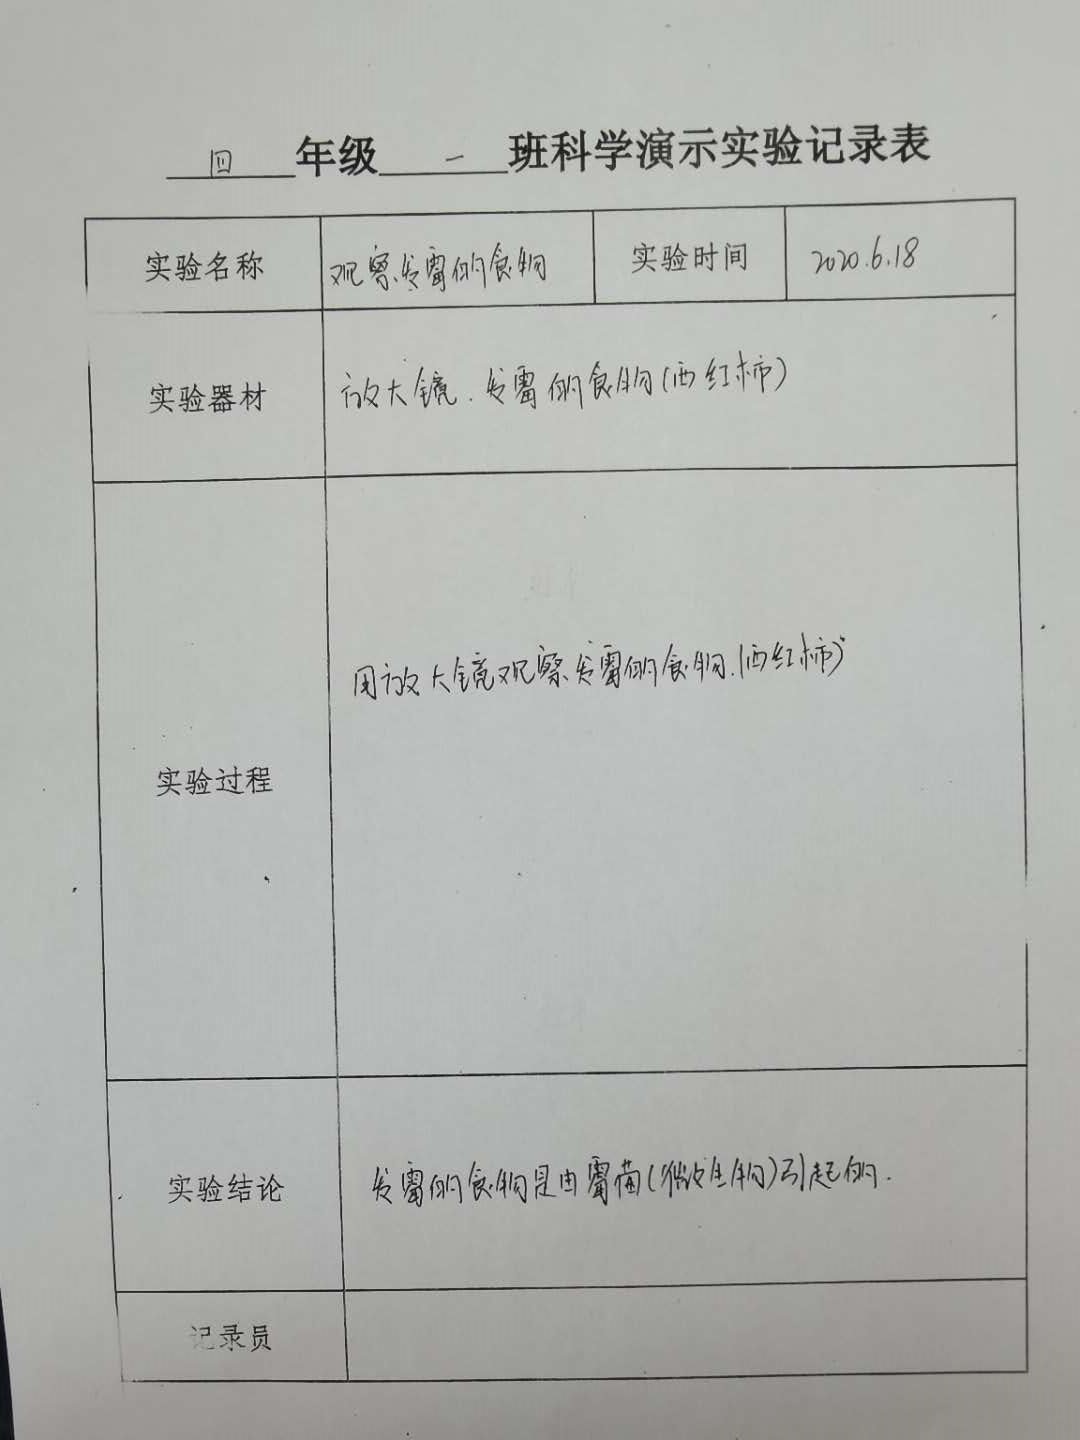 四年级一班科学演示实验记录表
实验名称 观察发霉的食物 实验时间 2020.6.18
实验器材 放大镜.发霉的食物(西红柿)
实验过程 用放大镜观察发霉的食物.(西红柿)
实验结论 发霉的食物是由霉菌(微生物)引起的.
记录员